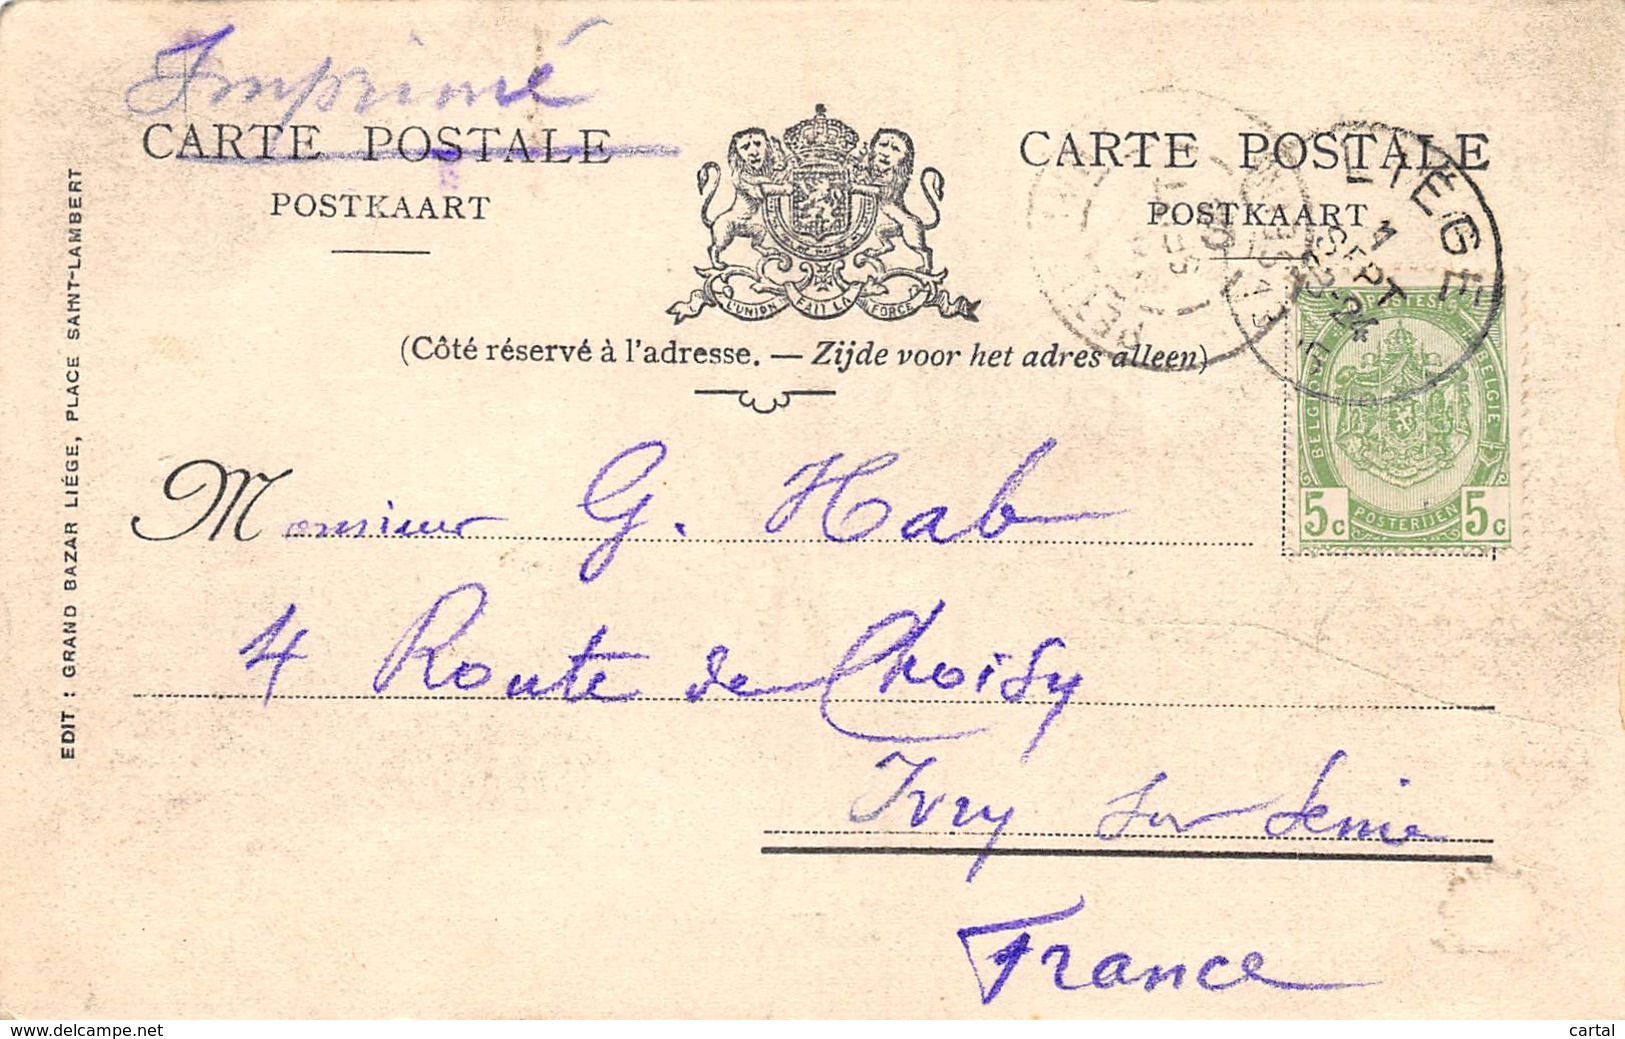 Imprimé
CARTE POSTALE
POSTKAART
CARTE POSTALE
POSTKAART
L'UNION FAIT LA FORCE
(Côté réservé à l'adresse. — Zijde voor het adres alleen)
LIÈGE
1
SEPT
POSTES
BELGIQUE
BELGIE
5c
POSTERIJEN
5c
Monsieur G. Hab
4 Route de Choisy
Ivry sur Seine
France
EDIT : GRAND BAZAR LIÉGE, PLACE SAINT-LAMBERT
www.delcampe.net
cartal